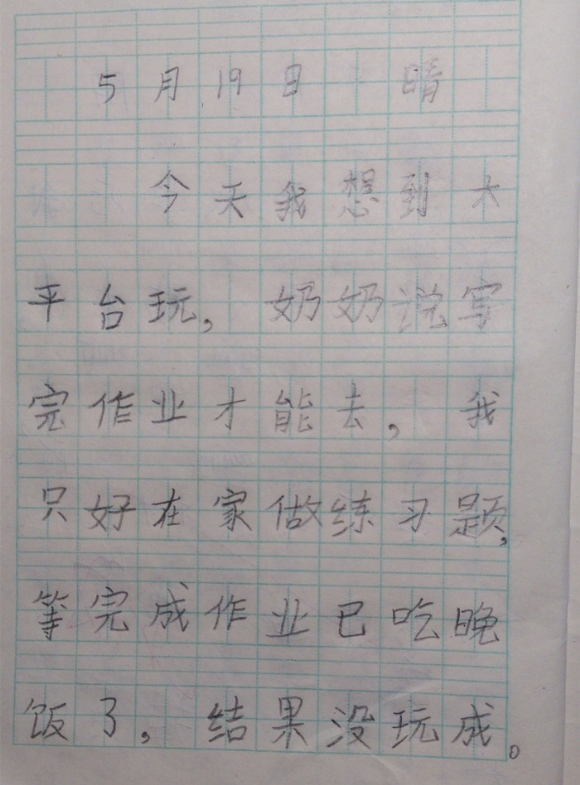 5月19日 晴
今天我想到大
平台玩，奶奶说写
完作业才能去，我
只好在家做练习题，
等完成作业已吃晚
饭了，结果没玩成。